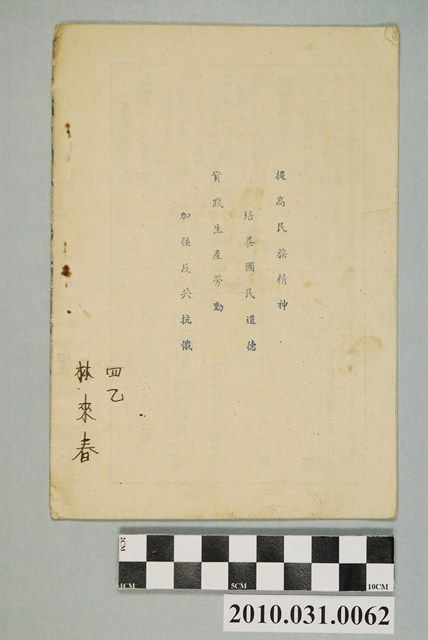 提高民族精神
培養國民道德
實踐生產勞動
加强反共抗俄
四乙
林來春
2CM
1CM
5CM
10CM
2010.031.0062